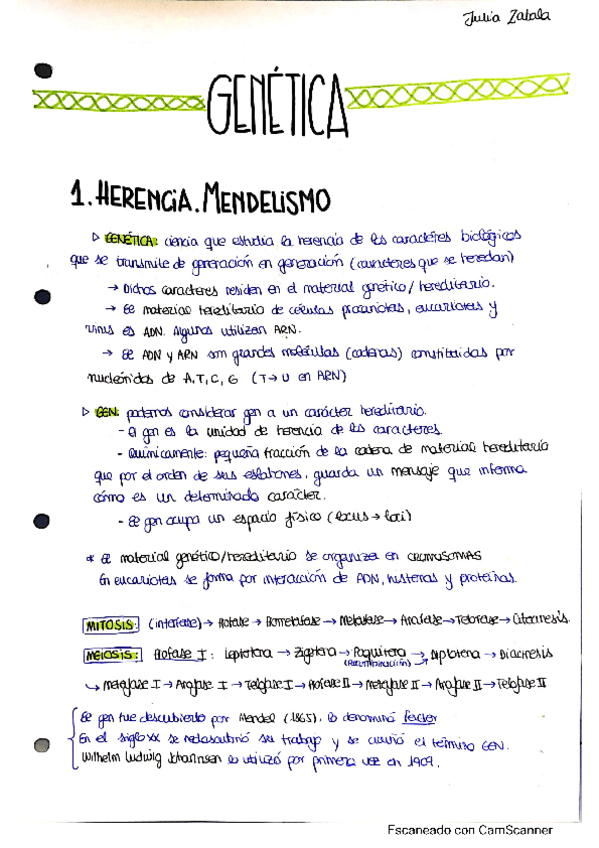 Julia Zabala
GENÉTICA
1. HERENCIA. MENDELISMO
▷ GENÉTICA: ciencia que estudia la herencia de los caracteres biológicos
que se transmite de generación en generación (caracteres que se heredan)
→ Dichos caracteres residen en el material genético/hereditario.
→ El material hereditario de células procariotas, eucariotas y
virus es ADN. Algunos utilizan ARN.
→ El ADN y ARN son grandes moléculas (cadenas) constituidas por
nucleótidos de A, T, C, G (T → U en ARN)
▷ GEN: podemos considerar gen a un carácter hereditario.
- El gen es la unidad de herencia de los caracteres.
- Químicamente: pequeña fracción de la cadena de material hereditario
que por el orden de sus eslabones, guarda un mensaje que informa
cómo es un determinado carácter.
- El gen ocupa un espacio físico (locus → loci)
* El material genético/hereditario se organiza en CROMOSOMAS
En eucariotas se forma por interacción de ADN, histonas y proteínas.
MITOSIS: (interfase) → Profase → Prometafase → Metafase → Anafase → Telofase → Citocinesis.
MEIOSIS: Profase I: Leptotena → Zigotena → Paquitena → Diplotena → Diacinesis
(Recombinación)
↳ Metafase I → Anafase I → Telofase I → Profase II → Metafase II → Anafase II → Telofase II
El gen fue descubierto por Mendel (1865), lo denominó factor
En el siglo XX se redescubrió su trabajo y se acuñó el término GEN.
Wilhelm Ludwig Johannsen lo utilizó por primera vez en 1909.
Escaneado con CamScanner